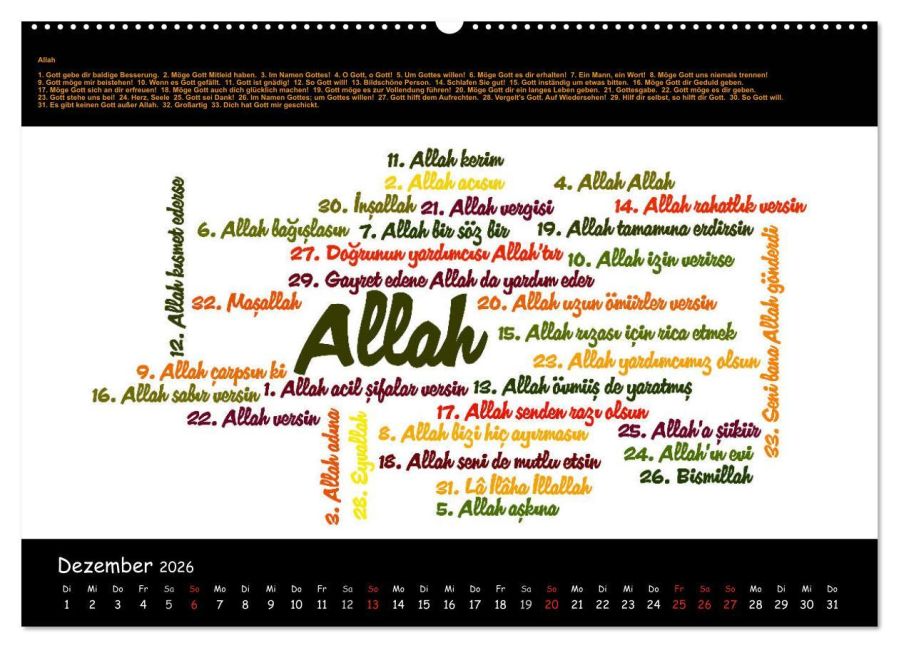 Allah
1. Gott gebe dir baldige Besserung. 2. Möge Gott Mitleid haben. 3. Im Namen Gottes! 4. O Gott, o Gott! 5. Um Gottes willen! 6. Möge Gott es dir erhalten! 7. Ein Mann, ein Wort! 8. Möge Gott uns niemals trennen!
9. Gott möge mir beistehen! 10. Wenn es Gott gefällt. 11. Gott ist gnädig! 12. So Gott will! 13. Bildschöne Person. 14. Schlafen Sie gut! 15. Gott inständig um etwas bitten. 16. Möge Gott dir Geduld geben.
17. Möge Gott sich an dir erfreuen! 18. Möge Gott auch dich glücklich machen! 19. Gott möge es zur Vollendung führen! 20. Möge Gott dir ein langes Leben geben. 21. Gottesgabe. 22. Gott möge es dir geben.
23. Gott stehe uns bei! 24. Herz, Seele 25. Gott sei Dank! 26. Im Namen Gottes; um Gottes willen! 27. Gott hilft dem Aufrechten. 28. Vergelt's Gott. Auf Wiedersehen! 29. Hilf dir selbst, so hilft dir Gott. 30. So Gott will.
31. Es gibt keinen Gott außer Allah. 32. Großartig 33. Dich hat Gott mir geschickt.
11. Allah kerim
2. Allah acısın
4. Allah Allah
30. İnşallah
21. Allah vergisi
14. Allah rahatlık versin
6. Allah bağışlasın
7. Allah bir söz bir
19. Allah tamamına erdirsin
27. Doğrunun yardımcısı Allah'tır
10. Allah izin verirse
29. Gayret edene Allah da yardım eder
12. Allah kısmet ederse
32. Maşallah
Allah
20. Allah uzun ömürler versin
33. Seni bana Allah gönderdi
15. Allah rızası için rica etmek
23. Allah yardımcımız olsun
9. Allah çarpsın ki
16. Allah sabır versin
1. Allah acil şifalar versin
13. Allah övmüş de yaratmış
22. Allah versin
17. Allah senden razı olsun
3. Allah adına
28. Eyvallah
8. Allah bizi hiç ayırmasın
25. Allah'a şükür
18. Allah seni de mutlu etsin
24. Allah'ın evi
26. Bismillah
31. Lâ İlâha İllallah
5. Allah aşkına
Dezember 2026
Di Mi Do Fr Sa So Mo Di Mi Do Fr Sa So Mo Di Mi Do Fr Sa So Mo Di Mi Do Fr Sa So Mo Di Mi Do
1 2 3 4 5 6 7 8 9 10 11 12 13 14 15 16 17 18 19 20 21 22 23 24 25 26 27 28 29 30 31